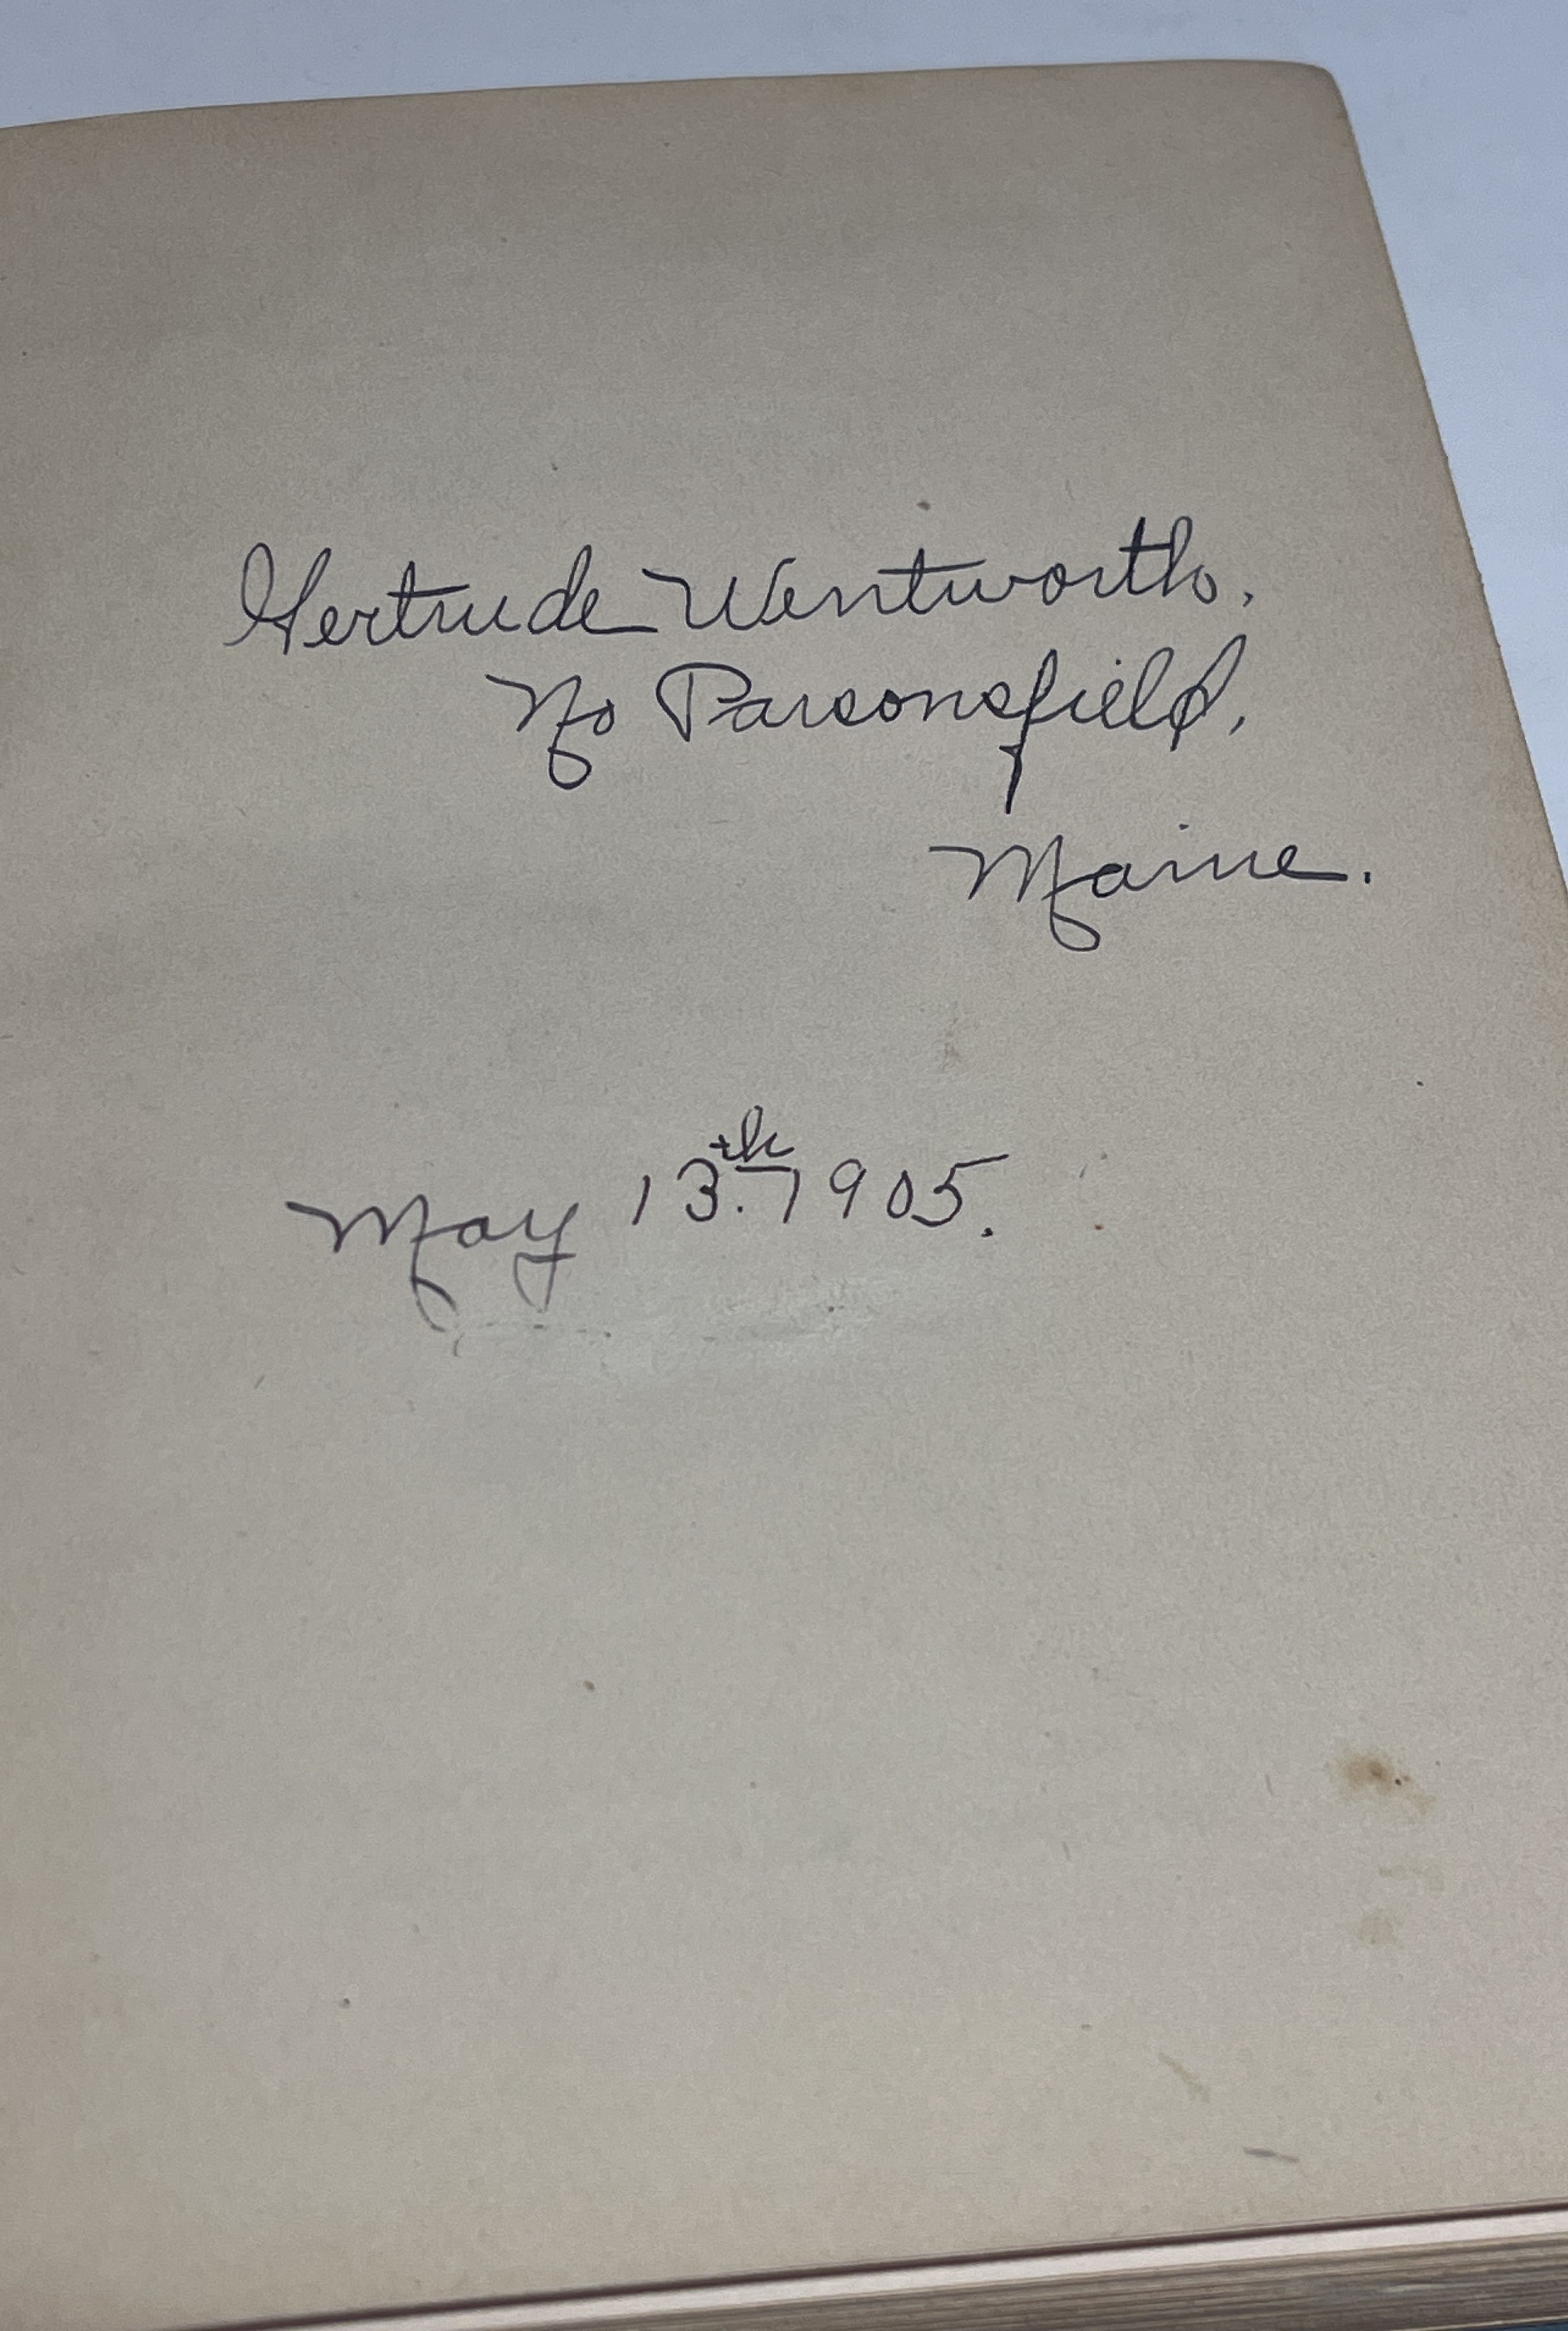 Gertrude Wentworth.
No Parsonsfield,
Maine.
May 13th. 1905.